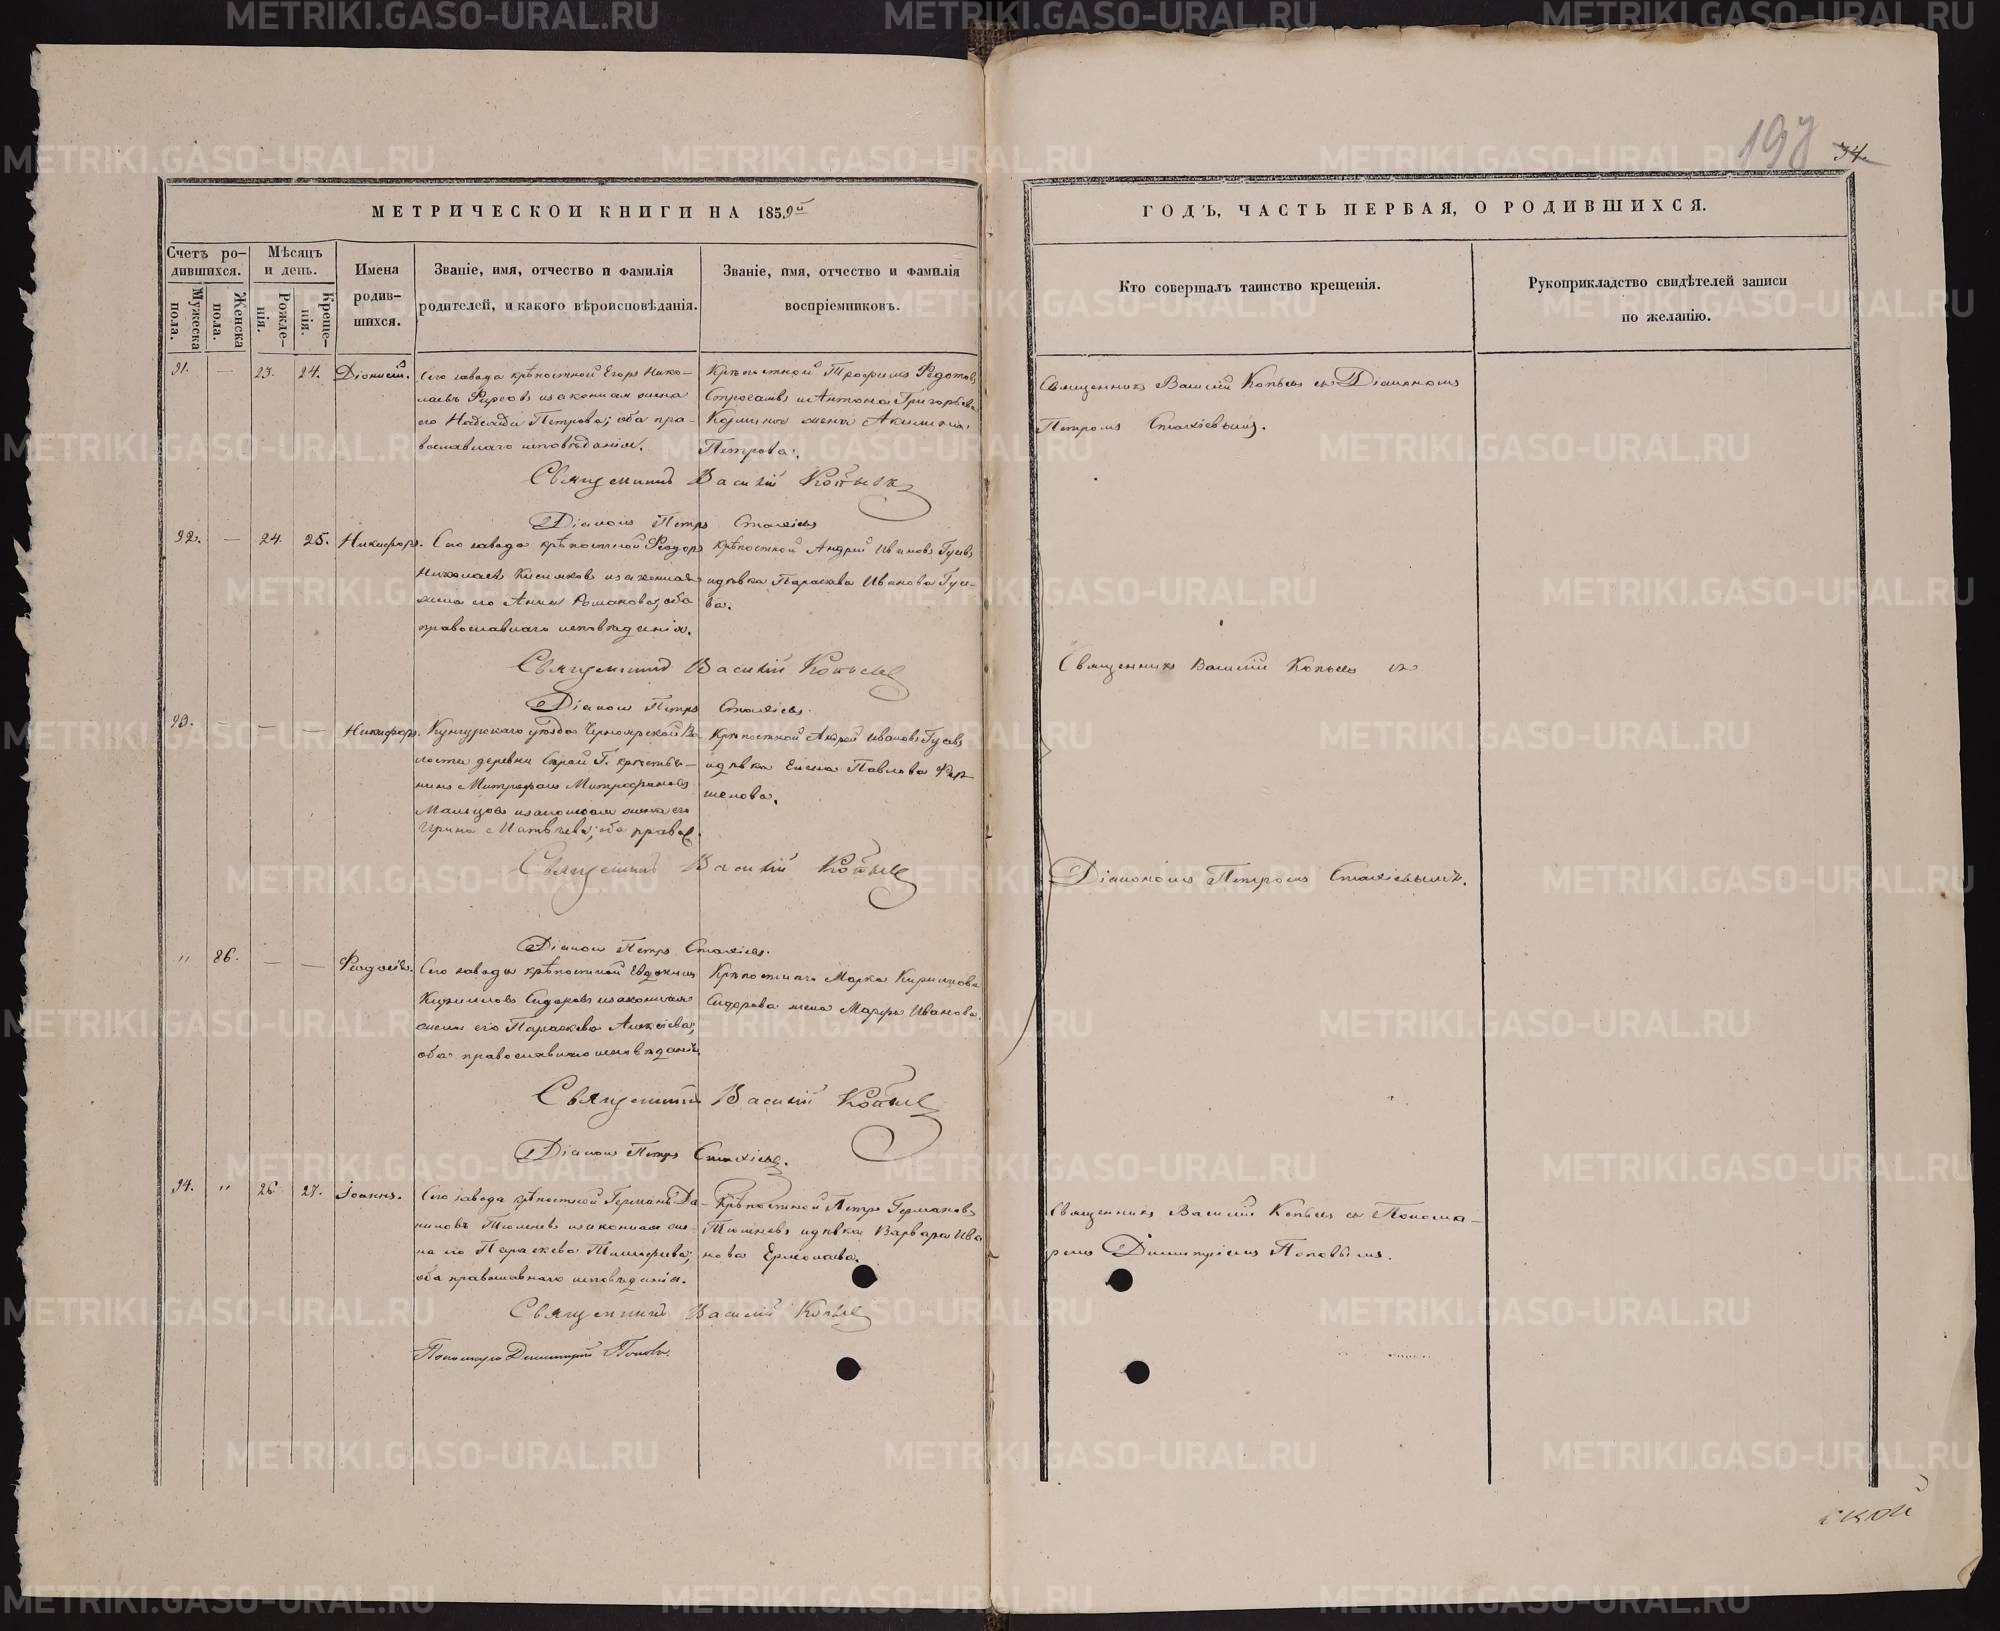 METRIKI.GASO-URAL.RU
197
34.
МЕТРИЧЕСКОЙ КНИГИ НА 1859й
ГОДЪ, ЧАСТЬ ПЕРВАЯ, О РОДИВШИХСЯ.
Счетъ ро-
дившихся.
Мужеска
пола.
Женска
пола.
Мѣсяцъ
и день.
Рожде-
нія.
Креще-
нія.
Имена
родив-
шихся.
Званіе, имя, отчество и фамилія
родителей, и какого вѣроисповѣданія.
Званіе, имя, отчество и фамилія
воспріемниковъ.
Кто совершалъ таинство крещенія.
Рукоприкладство свидѣтелей записи
по желанію.
91. — 23. 24. Діонисій.
Сего завода крѣпостной Егоръ Нико-
лаевъ и законная жена
его Надежда Петрова; оба пра-
вославнаго исповѣданія.
Крѣпостной Трофимъ Федотовъ
и Антона Григорьева
жена Акилина
Петрова.
Священникъ Василій Копыевъ съ Діакономъ
Петромъ Стахіевымъ.
Священникъ Василій Копыевъ
Діаконъ Петръ Стахіевъ
92. — 24. 25. Никифоръ.
Сего завода крѣпостной Ѳеодоръ
Николаевъ Кисляковъ и законная
жена его Анна Романова; оба
православнаго исповѣданія.
Крѣпостной Андрей Ивановъ Гусевъ
и дѣвка Параскева Иванова Гусе-
ва.
Священникъ Василій Копыевъ
Священникъ Василій Копыевъ съ
Діаконъ Петръ Стахіевъ.
93. — — — Никифоръ.
Кунгурскаго уѣзда Черноярской Во
лости деревни крестья-
нинъ Митрофанъ Митрофановъ
Мальцовъ и законная жена его
Ирина Матвѣева; оба правос.
Крѣпостной Андрей Ивановъ Гусевъ
и дѣвка Елена Павлова
Священникъ Василій Копыевъ
Діакономъ Петромъ Стахіевымъ.
Діаконъ Петръ Стахіевъ.
" 86. — —
Сего завода крѣпостной Евдокимъ
Кирилловъ Сидоровъ и законная
жена его Параскева Алексѣева;
оба православнаго исповѣданія.
Крѣпостнаго Марка Кириллова
Сидорова жена Марфа Иванова.
Священникъ Василій Копыевъ
Діаконъ Петръ Стахіевъ.
94. " 26. 27. Іоаннъ.
Сего завода крѣпостной Германъ Да-
ниловъ Тюленевъ и законная же-
на его Параскева Тимофеева;
оба православнаго исповѣданія.
Крѣпостной Петръ Германовъ
Тюленевъ и дѣвка Варвара Ива
нова Ермолаева.
Священникъ Василій Копыевъ съ Понома-
ремъ Димитріемъ Поповымъ.
Священникъ Василій Копыевъ
Пономарь Димитрій Поповъ.
ской